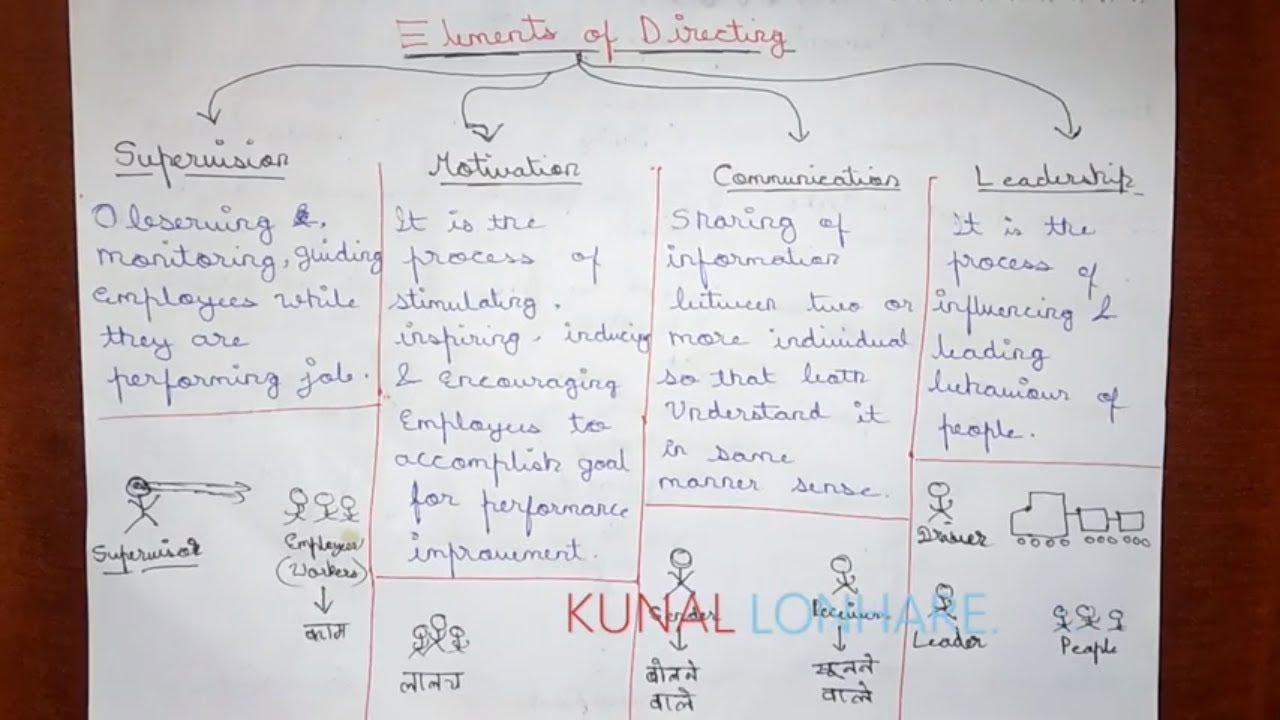 Elements of Directing
Supervision
Obeserving &,
monitoring, guiding
Employees while
they are
performing job.
Supervisor
Employees
(Workers)
काम
Motivation
It is the
process of
stimulating,
inspiring, inducing
& Encouraging
Employees to
accomplish goal
for performance
improvement.
लालच
Communication
Sharing of
information
between two or
more individual
so that both
Understand it
in same
manner sense.
Sender
Receiver
बोलने
वाले
सुनने
वाले
Leadership
It is the
process of
influencing &
leading
behaviour of
people.
Driver
Leader
People
KUNAL LONHARE.